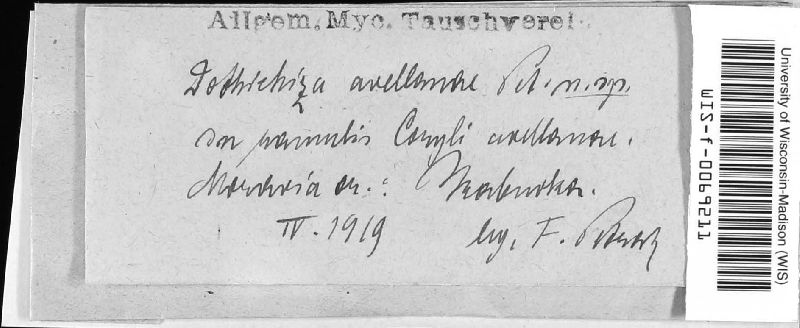 Allgem. Myc. Tauschverei
Dothichiza avellanae Pet. n. sp.
In ramulis Coryli avellanae.
Moravia or.: Hrabuvka.
IV. 1919 leg. F. Petrak
University of Wisconsin-Madison (WIS)
WIS-f-0069211